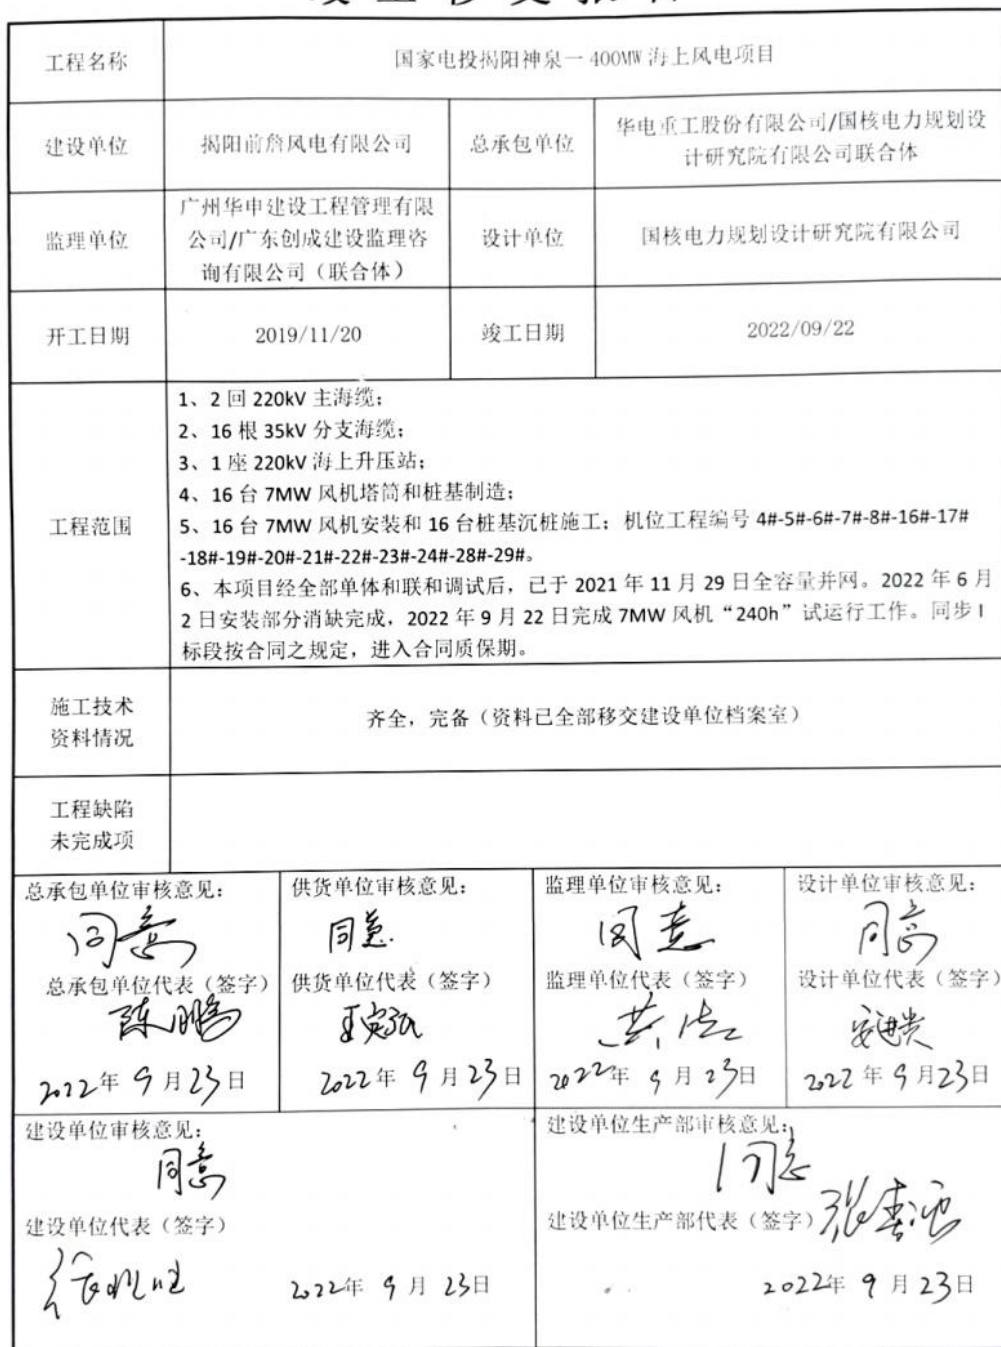 工程名称
国家电投揭阳神泉一 400MW 海上风电项目
建设单位
揭阳前詹风电有限公司
总承包单位
华电重工股份有限公司/国核电力规划设
计研究院有限公司联合体
监理单位
广州华申建设工程管理有限
公司/广东创成建设监理咨
询有限公司（联合体）
设计单位
国核电力规划设计研究院有限公司
开工日期
2019/11/20
竣工日期
2022/09/22
工程范围
1、2 回 220kV 主海缆；
2、16 根 35kV 分支海缆；
3、1 座 220kV 海上升压站；
4、16 台 7MW 风机塔筒和桩基制造；
5、16 台 7MW 风机安装和 16 台桩基沉桩施工；机位工程编号 4#-5#-6#-7#-8#-16#-17#
-18#-19#-20#-21#-22#-23#-24#-28#-29#。
6、本项目经全部单体和联和调试后，已于 2021 年 11 月 29 日全容量并网。2022 年 6 月
2 日安装部分消缺完成，2022 年 9 月 22 日完成 7MW 风机“240h”试运行工作。同步 I
标段按合同之规定，进入合同质保期。
施工技术
资料情况
齐全，完备（资料已全部移交建设单位档案室）
工程缺陷
未完成项
总承包单位审核意见：
同意
总承包单位代表（签字）
陈鹏
2022年 9 月 23 日
供货单位审核意见：
同意.
供货单位代表（签字）
2022 年 9 月 23 日
监理单位审核意见：
同意
监理单位代表（签字）
2022年 9 月 23日
设计单位审核意见：
同意
设计单位代表（签字）
2022 年 9 月 23 日
建设单位审核意见：
同意
建设单位代表（签字）
2022年 9 月 23日
建设单位生产部审核意见：
同意
建设单位生产部代表（签字）
2022年 9 月 23 日